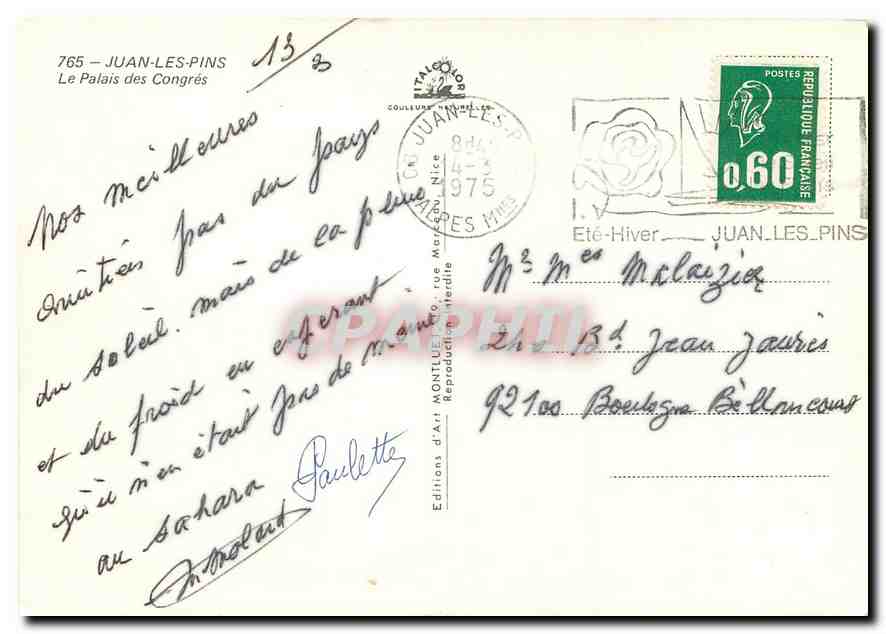 765 — JUAN-LES-PINS
Le Palais des Congrés
13
ITALCOLOR
COULEURS NATURELLES
06 JUAN-LES-P
1975
ALPES Mmes
POSTES
REPUBLIQUE FRANÇAISE
0,60
Eté-Hiver JUAN_LES_PINS
Nos meilleures
amitiés pas du pays
du soleil. mais de la pluie
et du froid en esperant
qu'il n'en était pas de même
au sahara
Paulette
Editions d'Art MONTLUET, rue Marceau, Nice
Reproduction interdite
CPAPHIL
Mr Mes Malaizier
Bd Jean Jaurès
92100 Boulogne Billancourt